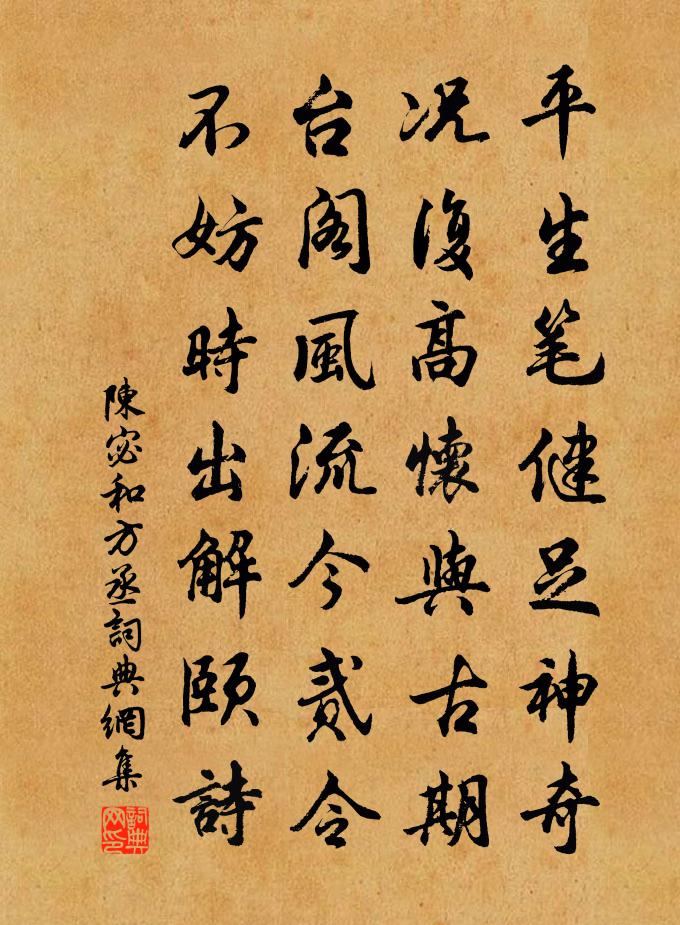 平生笔健足神奇
况復高懷與古期
台阁風流今貳令
不妨時出解頤詩
陳宓和方丞詞典網集
詞典网印